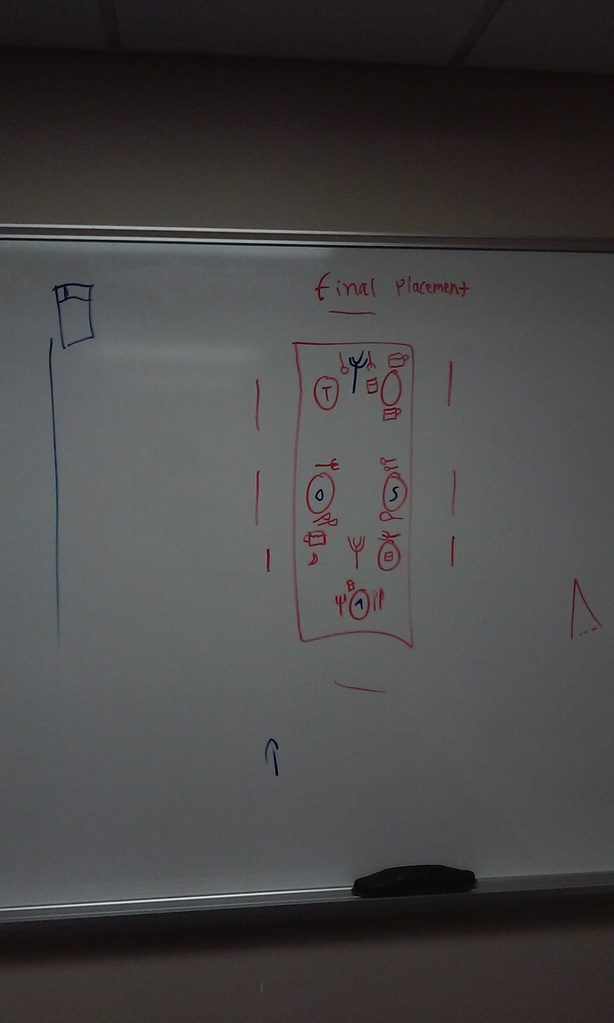 Final Placement
T
O
S
B